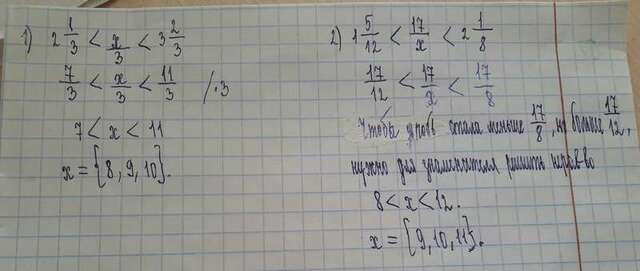 1) 2 1/3 < x/3 < 3 2/3
7/3 < x/3 < 11/3 /·3
7 < x < 11
x = {8, 9, 10}.
2) 1 5/12 < 17/x < 2 1/8
17/12 < 17/x < 17/8
Чтобы дробь стала меньше 17/8, но больше 17/12,
нужно для знаменателя решить нерав-во
8 < x < 12.
x = {9, 10, 11}.